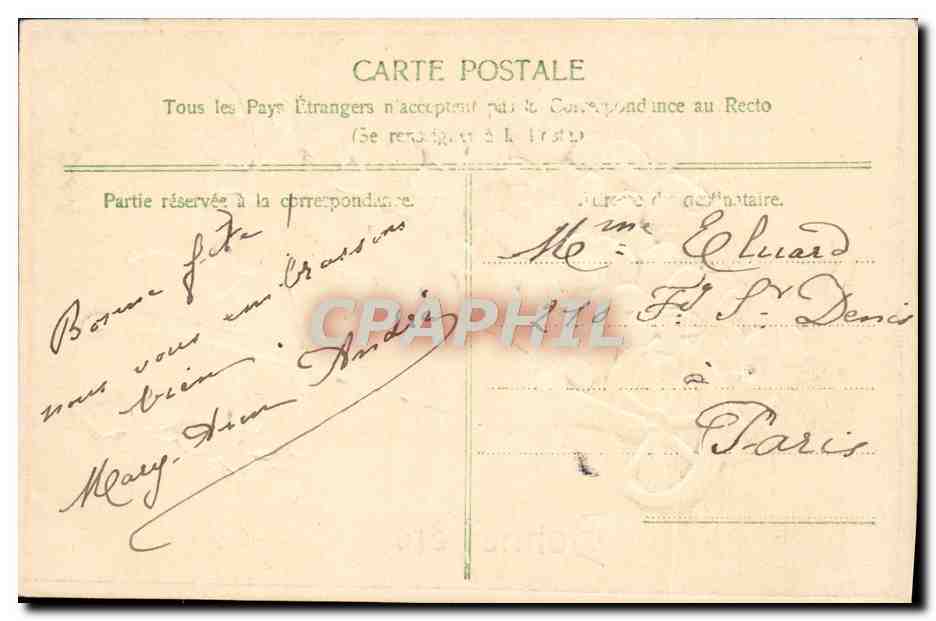 CARTE POSTALE
Tous les Pays Étrangers n'acceptent pas la Correspondance au Recto
(Se renseigner à la Poste)
Partie réservée à la correspondance.
Bonne fête !
nous vous embrassons
bien.
Mary-Anne André
Adresse du destinataire.
Mme Eluard
210 Fg St Denis
à
Paris
CPAPHIL
Bonne fête